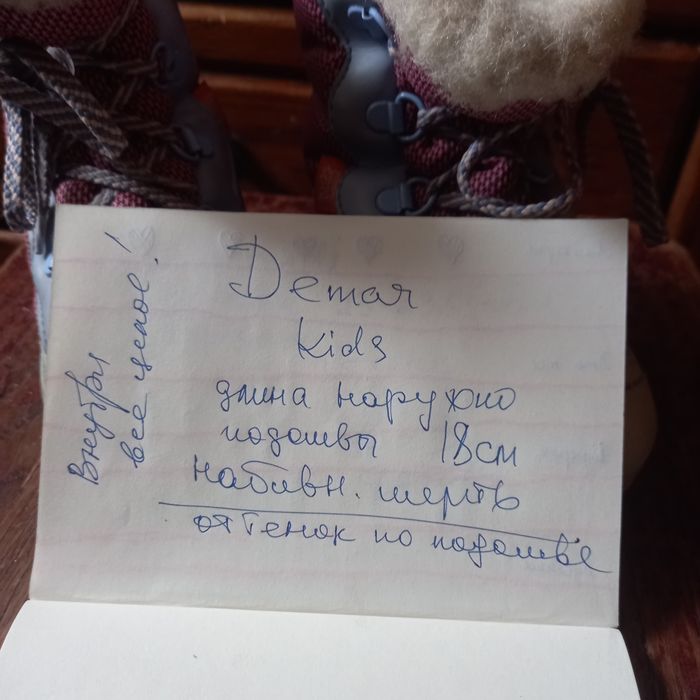 Demar
Kids
длина наружно
подошвы 18см
набивн. шерсть
оттенок по подошве
Внутри
всё целое!